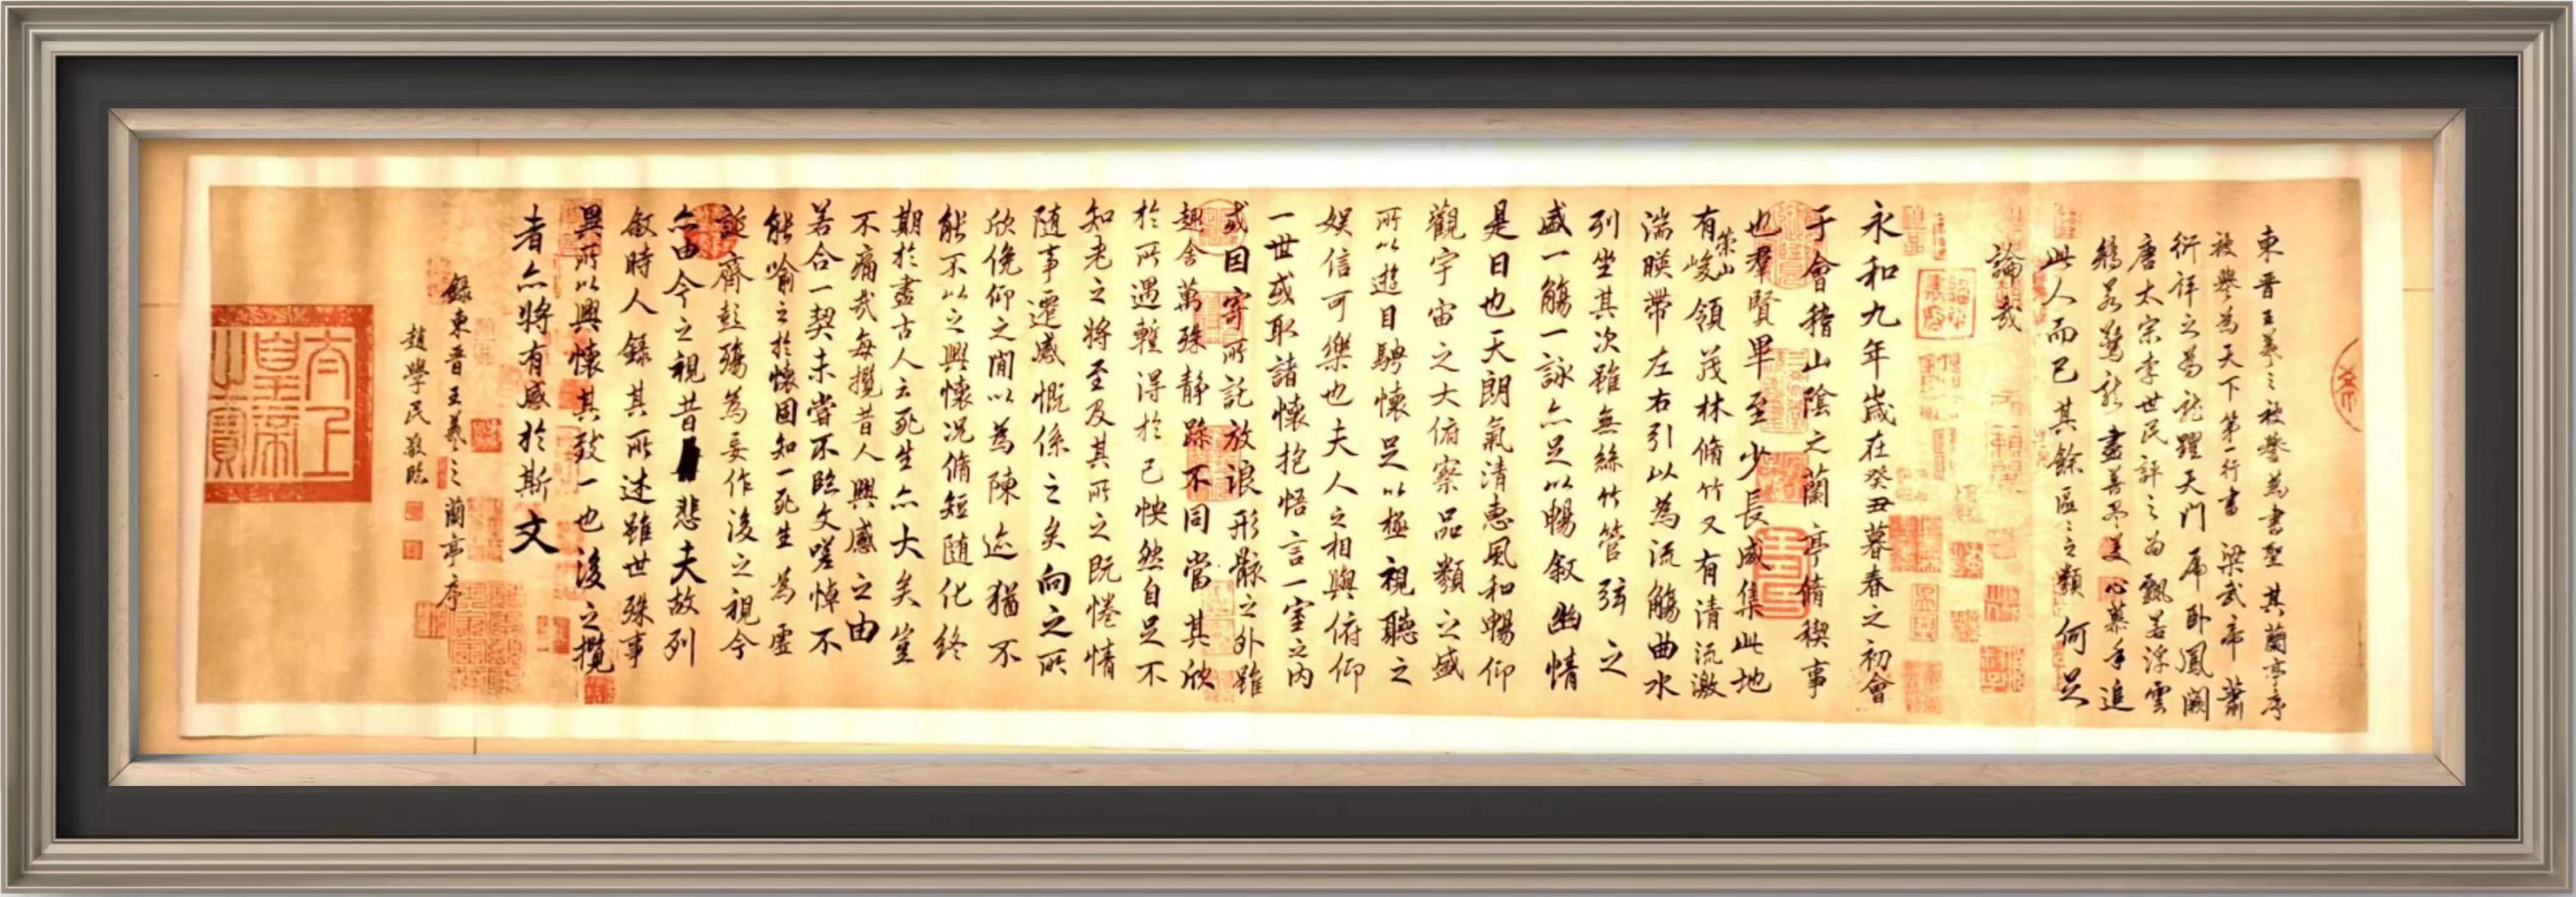 東晋王羲之被譽為書聖其蘭亭序
被譽為天下第一行書梁武帝蕭
衍評之為龍躍天門虎卧鳳闕
唐太宗李世民評之為飄若浮雲
矯若驚龍盡善盡美心慕手追
此人而已其餘區區之類何足
論哉
永和九年歲在癸丑暮春之初會
于會稽山陰之蘭亭脩稧事
也羣賢畢至少長咸集此地
有崇山峻領茂林脩竹又有清流激
湍暎帶左右引以為流觴曲水
列坐其次雖無絲竹管弦之
盛一觴一詠亦足以暢叙幽情
是日也天朗氣清惠風和暢仰
觀宇宙之大俯察品類之盛
所以遊目騁懷足以極視聽之
娛信可樂也夫人之相與俯仰
一世或取諸懷抱悟言一室之内
或因寄所託放浪形骸之外雖
趣舍萬殊靜躁不同當其欣
於所遇暫得於己怏然自足不
知老之將至及其所之既惓情
隨事遷感慨係之矣向之所
欣俛仰之閒以為陳迹猶不
能不以之興懷况脩短隨化終
期於盡古人云死生亦大矣豈
不痛哉每攬昔人興感之由
若合一契未嘗不臨文嗟悼不
能喻之於懷固知一死生為虛
誕齊彭殤為妄作後之視今
亦由今之視昔悲夫故列
叙時人錄其所述雖世殊事
異所以興懷其致一也後之攬
者亦將有感於斯文
錄東晋王羲之蘭亭序
趙學民敬臨
太上皇帝之寶